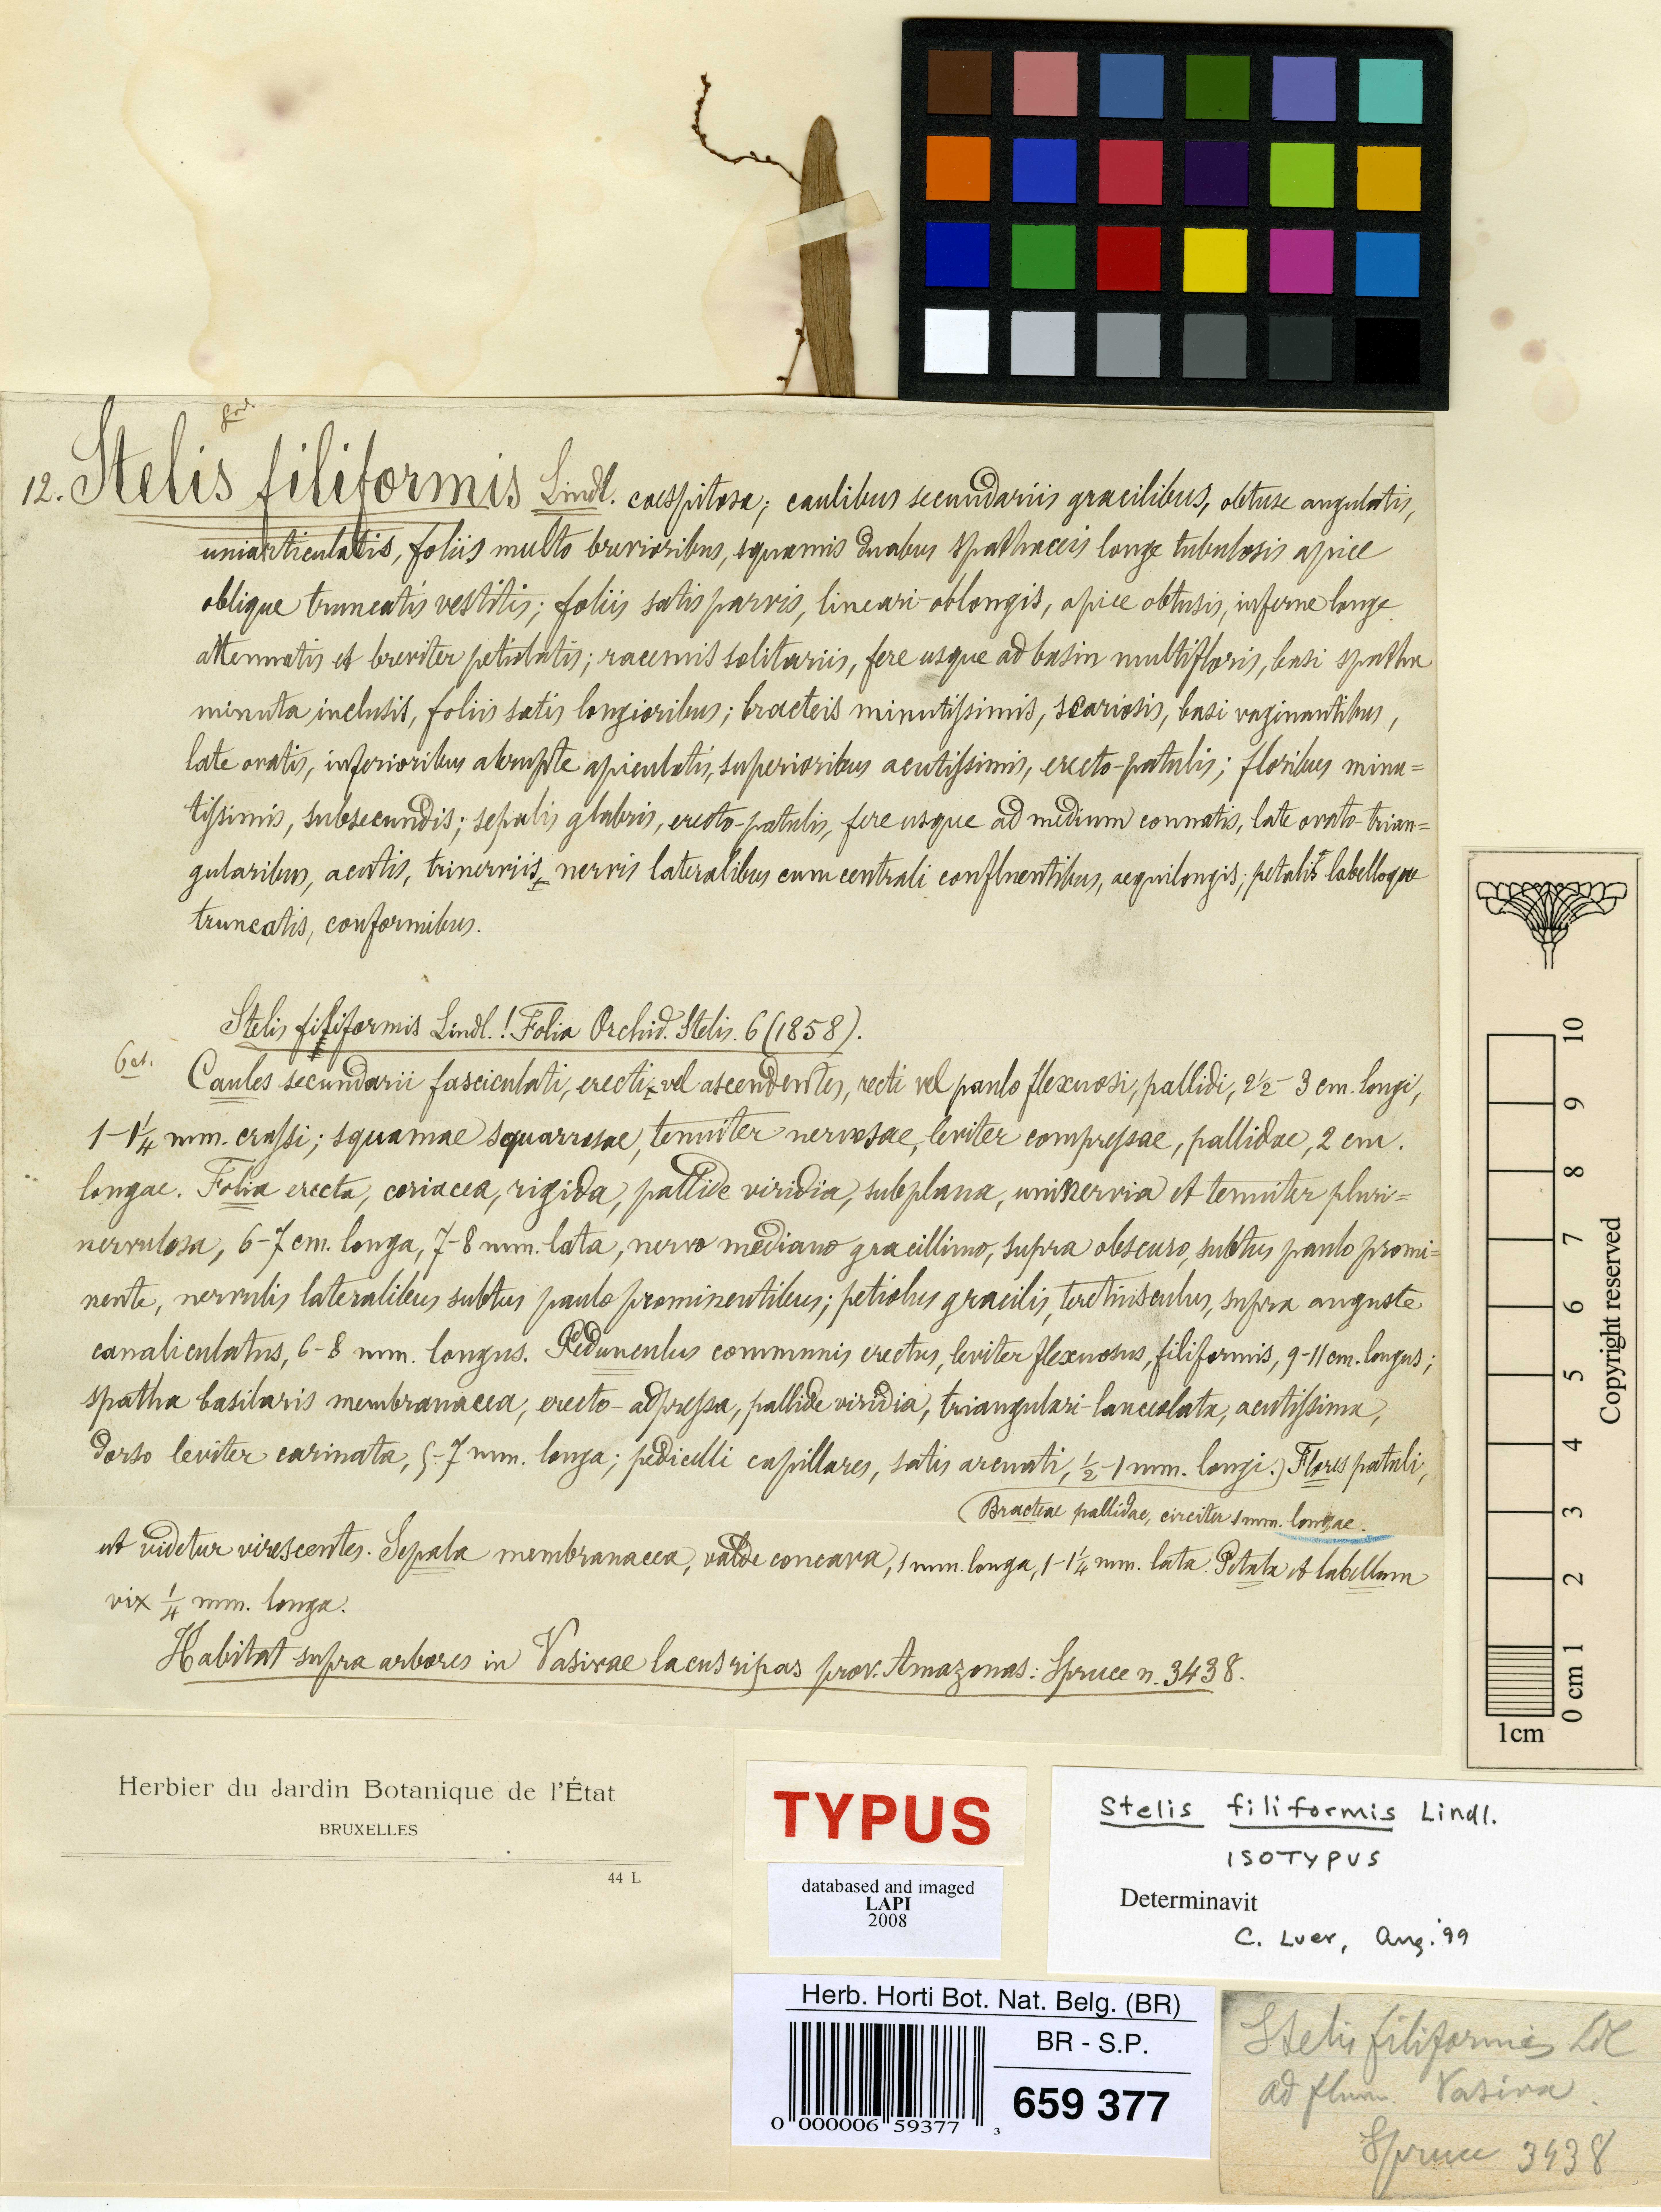 12. Stelis filiformis Lindl. caespitosa; caulibus secundariis gracilibus, obtuse angulatis,
uniarticulatis, foliis multo brevioribus, squamis duabus spathaceis longe tubulosis apice
oblique truncatis vestitis; foliis satis parvis, lineari-oblongis, apice obtusis, inferne longe
attenuatis et breviter petiolatis; racemis solitariis, fere usque ad basin multifloris, basi spatha
minuta inclusis, foliis satis longioribus; bracteis minutissimis, scariosis, basi vaginantibus,
late ovatis, inferioribus abrupte apiculatis, superioribus acutissimis, erecto-patulis; floribus minu=
tissimis, subsecundis; sepalis glabris, erecto-patulis, fere usque ad medium connatis, late ovato-trian=
gularibus, acutis, trinerviis, nervis lateralibus cum centrali confluentibus, aequilongis; petalis labelloque
truncatis, conformibus.
Stelis filiformis Lindl.! Folia Orchid. Stelis. 6 (1858).
Caules secundarii fasciculati, erecti vel ascendentes, recti vel paulo flexuosi, pallidi, 2½-3 cm. longi,
1-1¼ mm. crassi; squamae squarrosae, tenuiter nervosae, leviter compressae, pallidae, 2 cm.
longae. Folia erecta, coriacea, rigida, pallide viridia, subplana, uninervia et tenuiter pluri=
nervulosa, 6-7 cm. longa, 7-8 mm. lata, nervo mediano gracillimo, supra obscuro, subtus paulo promi=
nente, nervulis lateralibus subtus paulo prominentibus; petiolus gracilis, teretiusculus, supra anguste
canaliculatus, 6-8 mm. longus. Pedunculus communis erectus, leviter flexuosus, filiformis, 9-11 cm. longus;
spatha basilaris membranacea, erecto-adpressa, pallide viridia, triangulari-lanceolata, acutissima,
dorso leviter carinata, 5-7 mm. longa; pedicelli capillares, satis arcuati, ½-1 mm. longi. Flores patuli,
(Bracteae pallidae, circiter 1 mm. longae.
ut videtur virescentes. Sepala membranacea, valde concava, 1 mm. longa, 1-1¼ mm. lata. Petala et labellum
vix ¼ mm. longa.
Habitat supra arbores in Vasivae lacus ripas prov. Amazonas: Spruce n. 3438.
Herbier du Jardin Botanique de l'État
BRUXELLES
44 L
TYPUS
databased and imaged
LAPI
2008
Stelis filiformis Lindl.
ISOTYPUS
Determinavit
C. Luer, Aug. '99
Herb. Horti Bot. Nat. Belg. (BR)
BR - S.P.
659 377
0 000006 59377 3
Stelis filiformis Ldl
ad flum. Vasiva.
Spruce 3438
10
9
8
7
6
5
4
3
2
1
0 cm
1cm
Copyright reserved